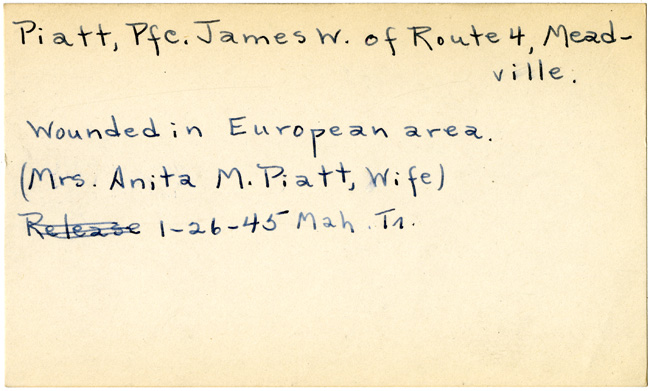 Piatt, Pfc. James W. of Route 4, Mead-
ville.
Wounded in European area.
(Mrs. Anita M. Piatt, Wife)
Release 1-26-45 Mah. Tr.